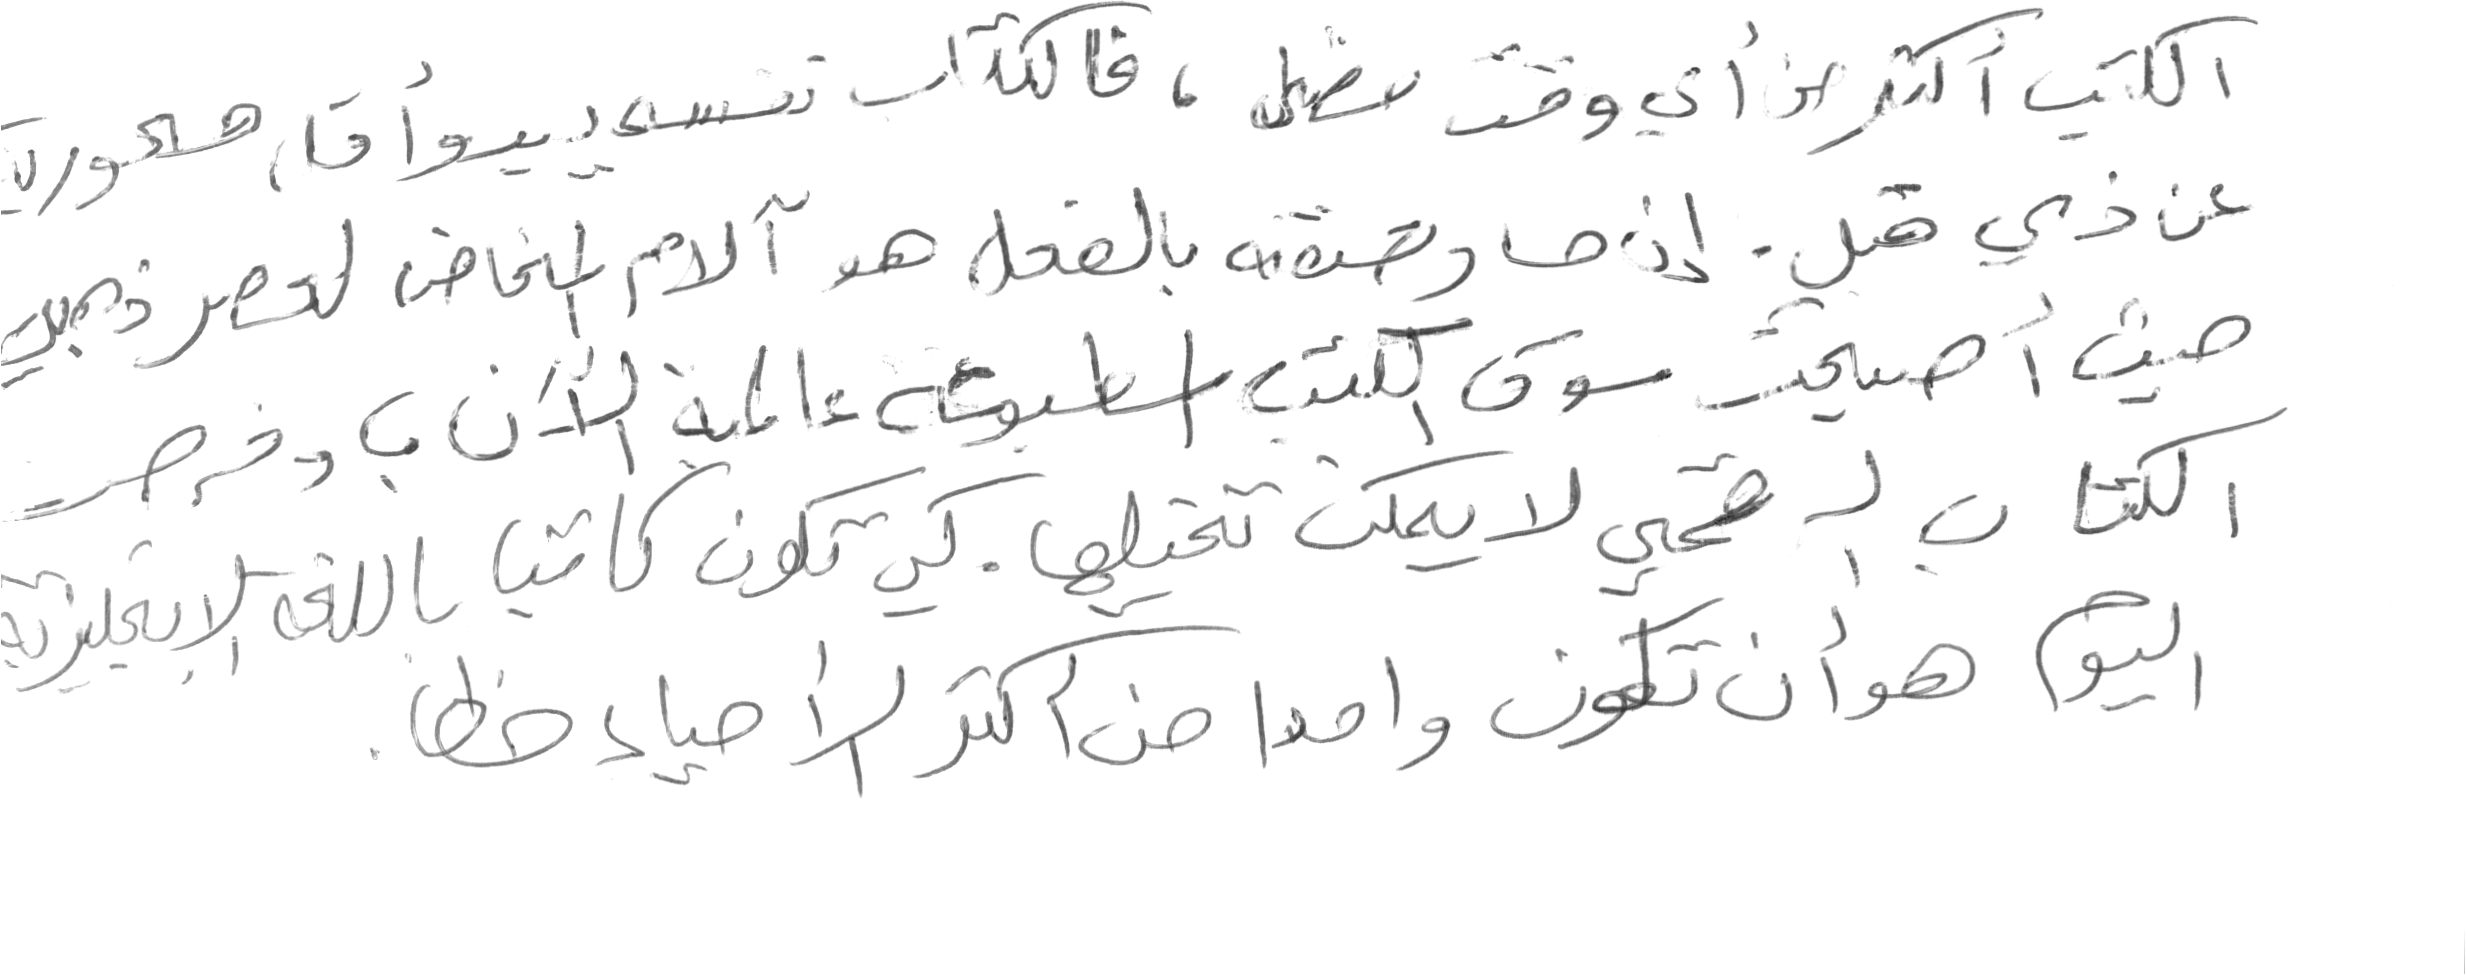 الكتب أكثر من أي وقت مضى، فالكتاب نفسه يتبوأ مقاما محوريا
عن ذي قبل. إن ما وصفته بالفعل هو آلام المخاض لعصر ذهبي
حيث أصبحت سوق الكتب المطبوعة عالمية الآن، وخرجت
الكتاب الرقمي لا يمكن تخيلها. كي تكون كاتبا باللغة الإنجليزية
اليوم هو أن تكون واحدا من أكثر الأجيال حظا.